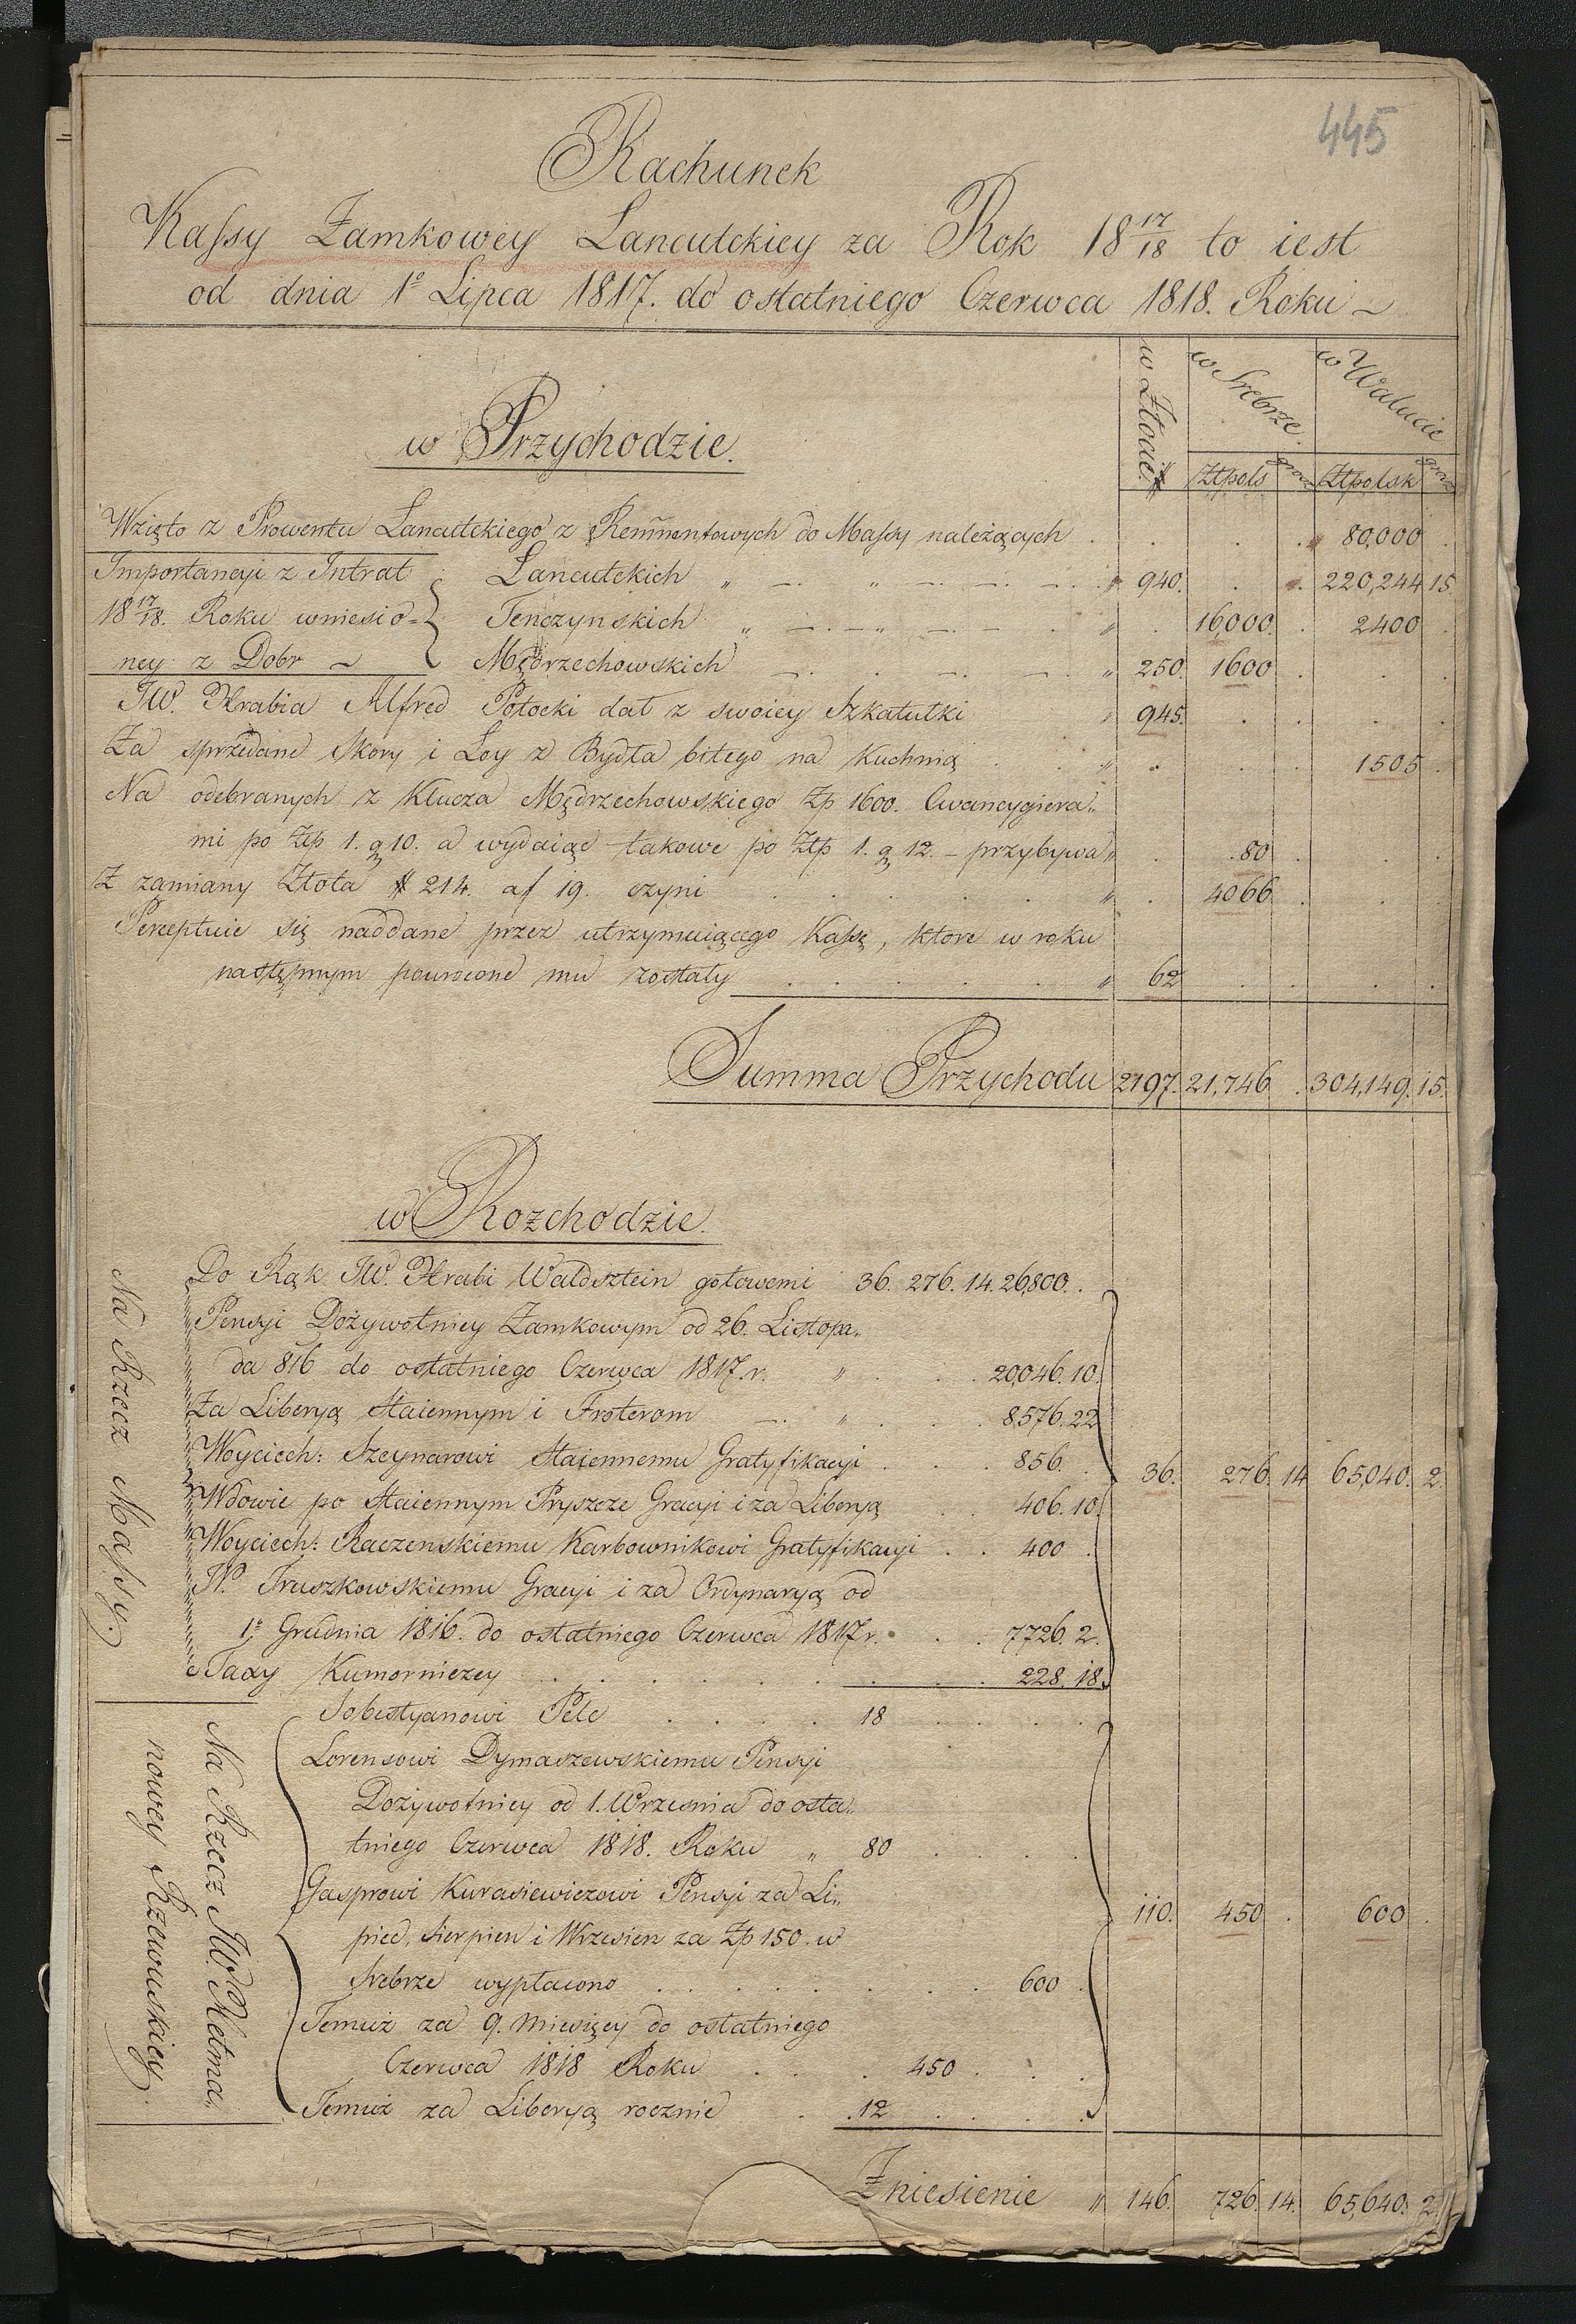 445
Rachunek
Kassy Zamkowey Lancutckiey za Rok 18 17/18 to iest
od dnia 1º Lipca 1817. do ostatniego Czerwca 1818. Roku ~
w Złocie # w Srebrze. w Walucie
w Przychodzie.
Ztpols grosz Ztpolsk grosz
Wzięto z Prowentu Lancutckiego z Rem̄nentowych do Massy należących . . . . 80,000 .
Importancyi z Intrat Lancutckich 940. . . 220,244 15.
18 17/18. Roku wniesio= Tenczynskich . 16,000. . 2400 .
ney z Dobr ~ Mędrzechowskich 250. 1600 . . .
JW. Hrabia Alfred Potocki dał z swoiey Szkatułki 945. . . . .
Za sprzedane Skory i Loy z Bydła bitego na Kuchnią . . . 1505 .
Na odebranych z Klucza Mędrzechowskiego Zp 1600. Cwancygiera„
mi po Ztp 1. g 10. a wydaiąc takowe po Ztp 1. g 12. – przybywa „ . 80 . . .
Z zamiany Złota # 214. af 19. czyni „ . 4066 . . .
Perceptuie się naddane przez utrzymuiącego Kassę, ktore w roku
następnym powrocone mu zostały „ 62 . . . .
Summa Przychodu 2197. 21,746 . 304,149. 15.
w Rozchodzie.
Na Rzecz Massy.
Do Rąk JW. Hrabi Waldsztein gotowemi 36. 276. 14. 26,800. .
Pensyi Dożywotniey Zamkowym od 26. Listopa„
da 816 do ostatniego Czerwca 1817. r. „ 20,046. 10.
Za Liberyą Staiennym i Froterom „ 8576. 22
Woyciech: Szeynarowi Staiennemu Gratyfikacyi . . . 856. . 36. 276. 14 65,040. 2.
Wdowie po Staiennym Pryszcze Gracyi i za Liberyą . . 406. 10.
Woyciech: Raczenskiemu Karbownikowi Gratyfikacyi . . 400 .
W. Truszkowskiemu Gracyi i za Ordynaryą od
1º Grudnia 1816. do ostatniego Czerwca 1817 r. . . 7726. 2.
Taxy Kumorniczey 228. 18.
Na Rzecz JW. Hetma„
nowey Rzewuskiey.
Sobestyanowi Pele 18
Lorensowi Dymaszewskiemu Pensyi
Dożywotniey od 1. Wrzesnia do osta„
tniego Czerwca 1818. Roku „ 80
Gasprowi Kurasiewiczowi Pensyi za Li„
piec, Sierpien i Wrzesien za Zp 150. w 110. 450 . 600 .
Srebrze wypłacono 600 .
Temuż za 9. miesięcy do ostatniego
Czerwca 1818 Roku 450
Temuż za Liberyą rocznie . 12
Zniesienie „ 146. 726. 14. 65,640. 2.